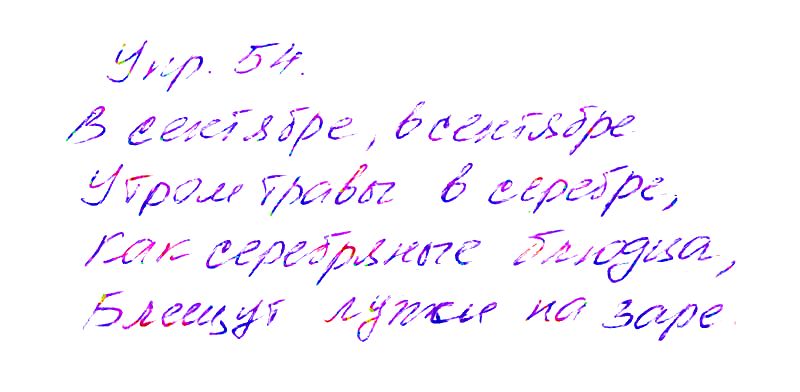 Упр. 54.
В сентябре, в сентябре
Утром травы в серебре,
Как серебряные блюдца,
Блещут лужи на заре.